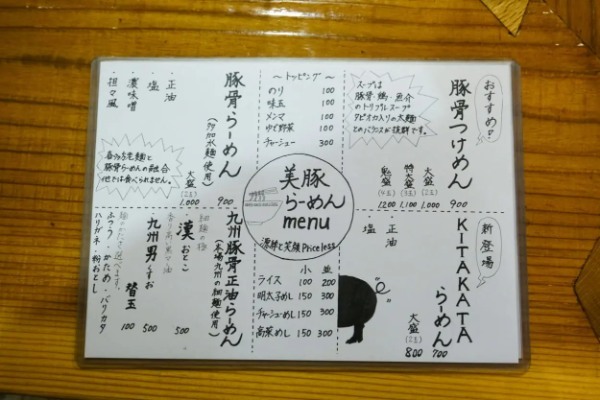 おすすめ?
豚骨つけめん
900
大盛(2玉)
1,000
特大盛(3玉)
1100
鬼盛(4玉)
1200
スープは
豚骨・鶏・魚介
のトリプルスープ
タピオカ入りの太麺
とのバランスが抜群です。
〜トッピング〜
のり 100
味玉 100
メンマ 100
ゆで野菜 100
チャーシュー 300
豚骨らーめん
(多加水麺使用)
900
大盛(2玉)
1,000
・正油
・塩
・濃味噌
・担々風
喜多方熟麺と
豚骨らーめんの融合
他では食べられません。
美豚
らーめん
menu
源様と笑顔Priceless
新登場
KITAKATA
らーめん
700
大盛(2玉)
800
正油
塩
小 並
ライス 100 200
明太子めし 150 300
チャーシューめし 150 300
高菜めし 150 300
九州豚骨正油らーめん
(本場九州の細麺使用)
細麺の極
漢 おとこ
500
香り高い黒マー油
九州男
500
替玉
100
麺のかたさ選べます。
ふつう・かため・バリカタ
ハリガネ・粉おとし